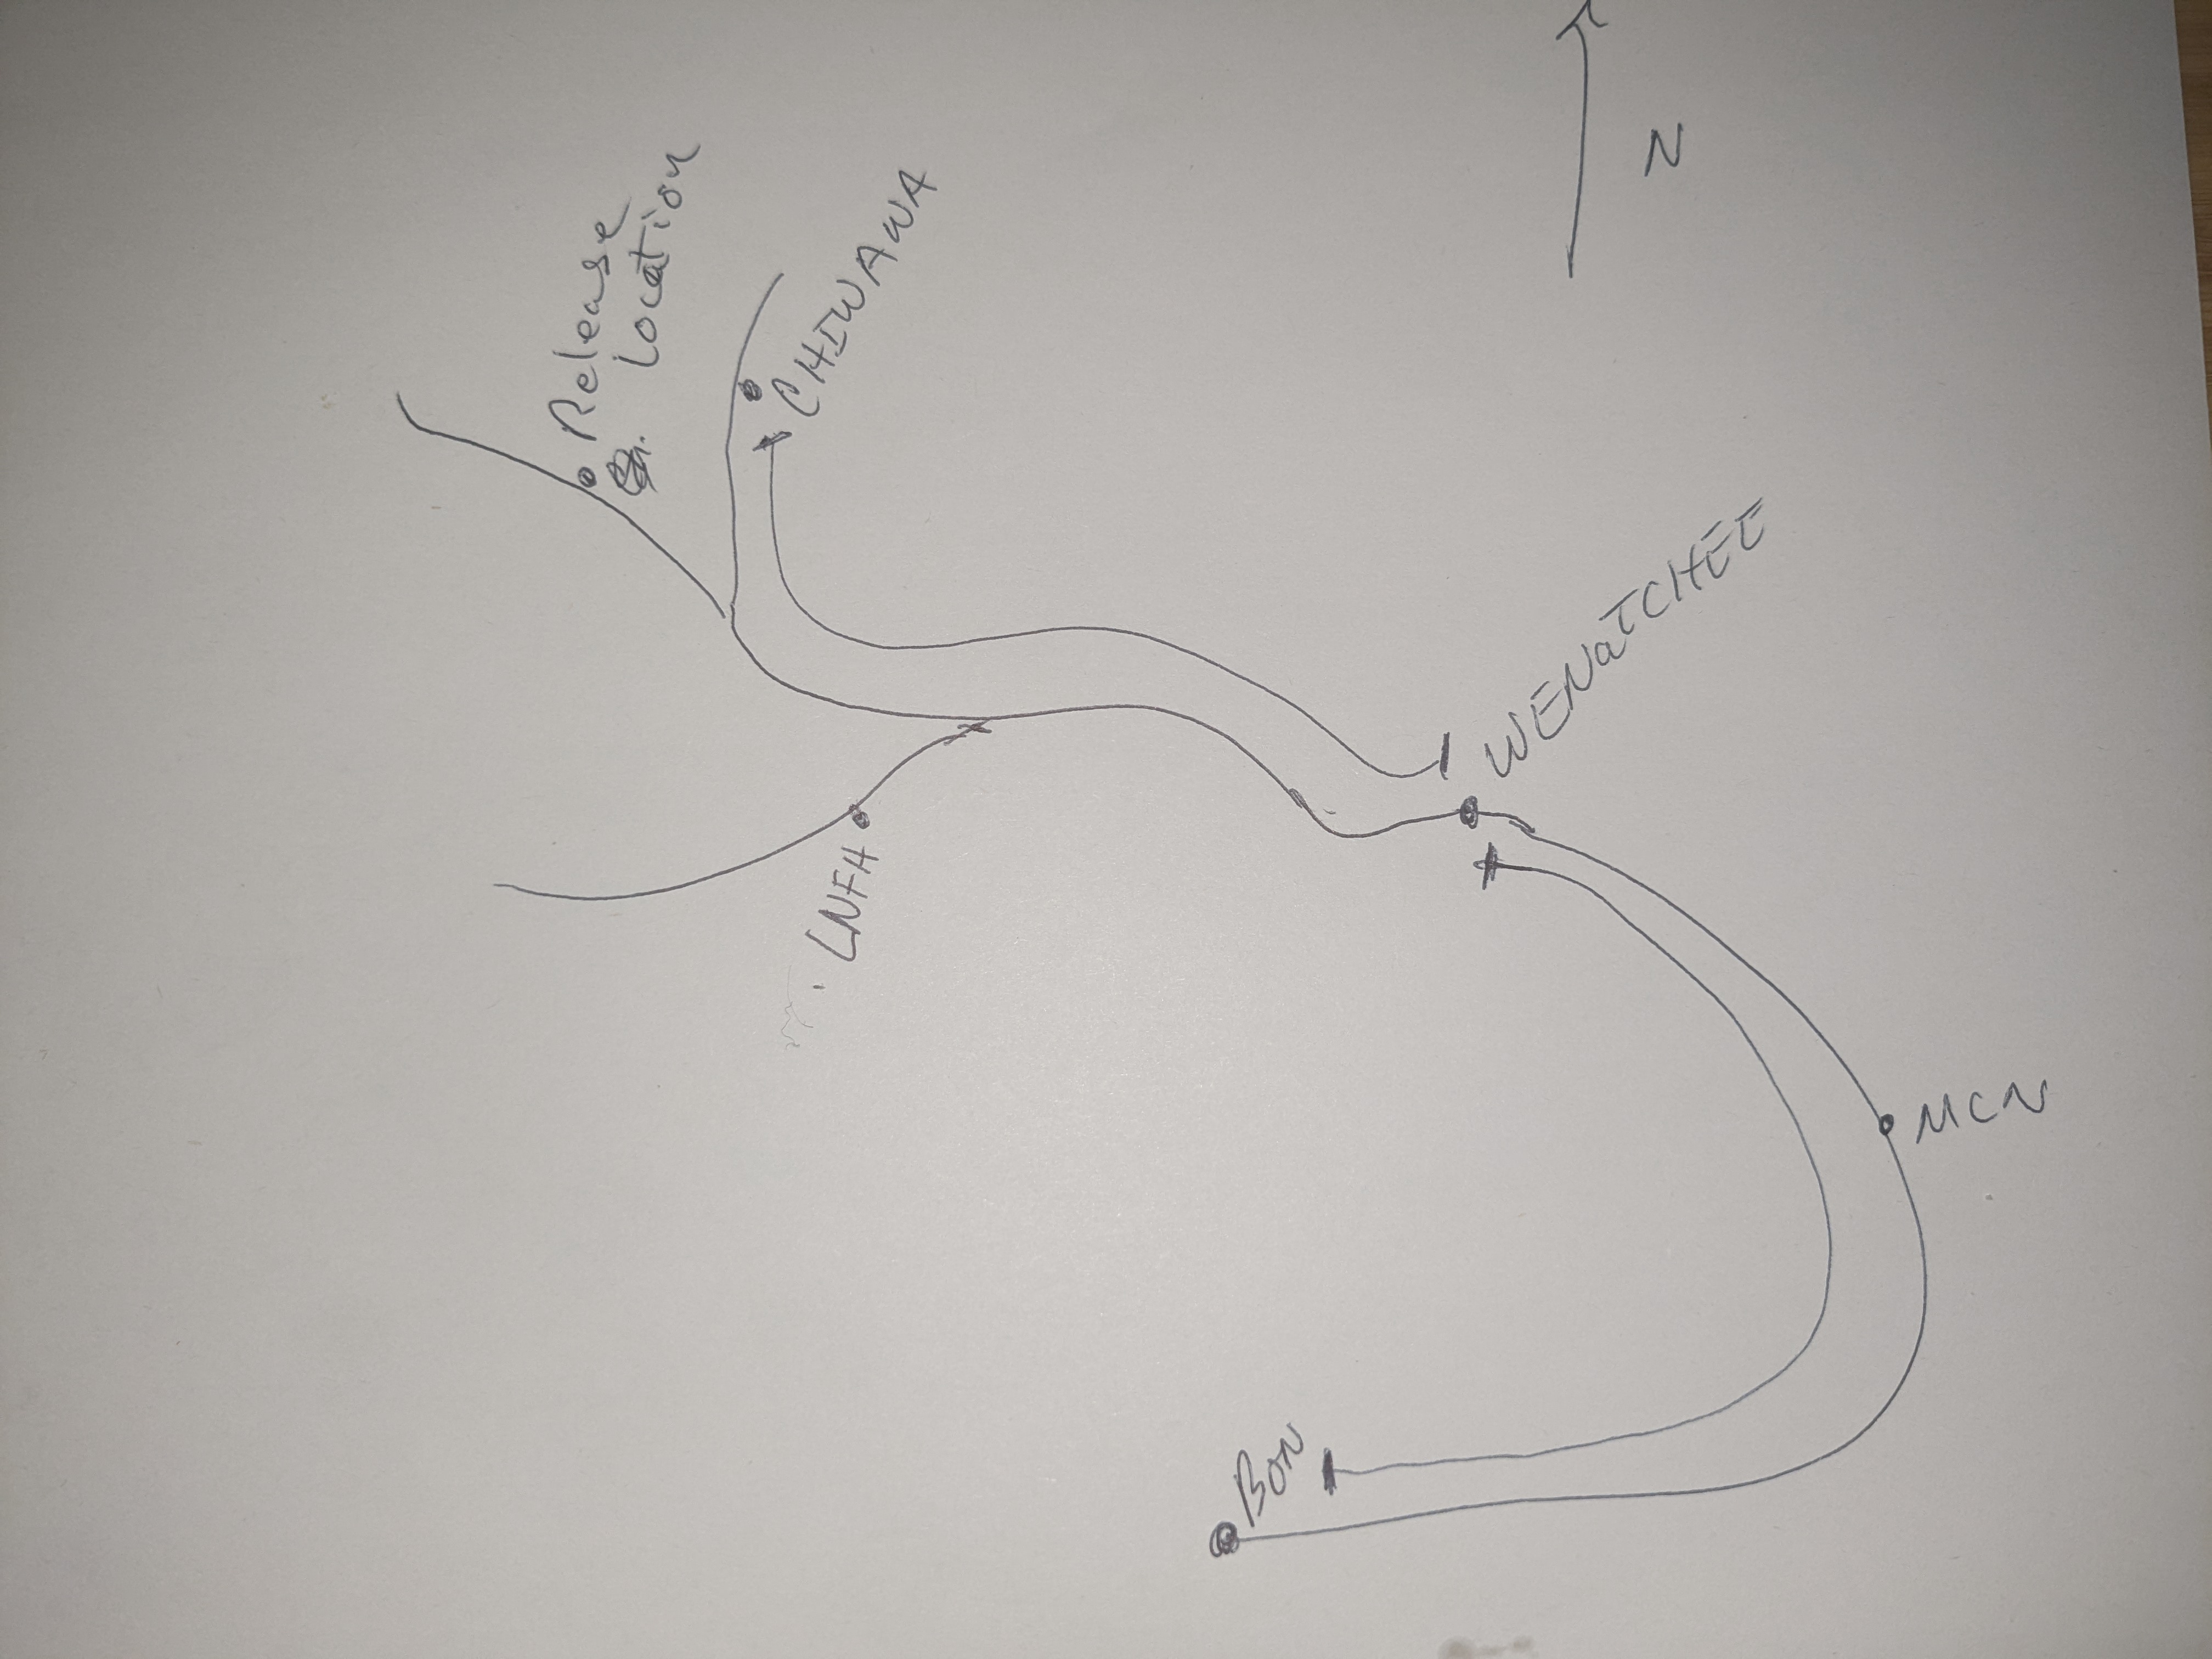 N
Release
Location
CHIWAWA
WENaTCHEE
LNFH
MCN
BON